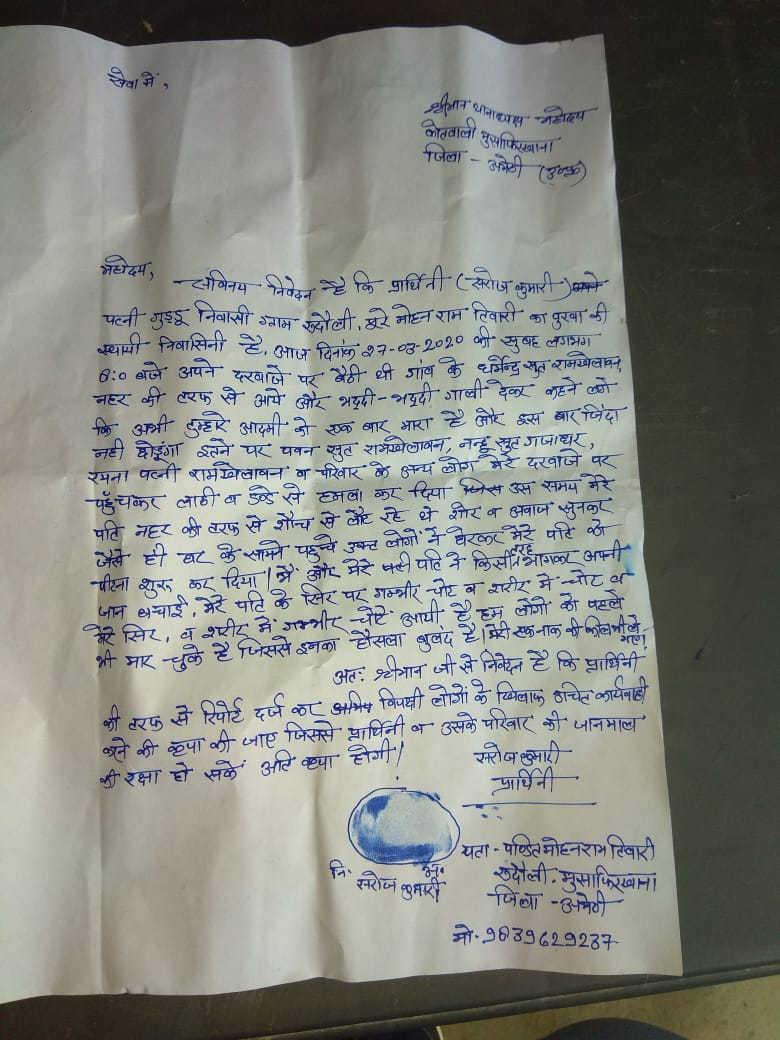 सेवा में,
श्रीमान थानाध्यक्ष महोदय
कोतवाली मुसाफिरखाना
जिला - अमेठी
महोदय,
सविनय निवेदन है कि प्रार्थिनी (सरोज कुमारी)
पत्नी गुड्डू निवासी ग्राम रुदौली, पूरे मोहन राम तिवारी का पुरवा की
स्थायी निवासिनी है, आज दिनांक 27-03-2020 की सुबह लगभग
6:0 बजे अपने दरवाजे पर बैठी थी गांव के धर्मेन्द्र सुत रामखेलावन,
नहर की तरफ से आये और भद्दी-भद्दी गाली देकर कहने लगे
कि अभी तुम्हारे आदमी को एक बार मारा है और इस बार जिंदा
नही छोडूंगा इतने पर पवन सुत रामखेलावन, नन्हू सुत गजाधर,
रमना पत्नी रामखेलावन व परिवार के अन्य लोग मेरे दरवाजे पर
पहुँचकर लाठी व डण्डे से हमला कर दिया उस समय मेरे
पति नहर की तरफ से शौच से लौट रहे थे शोर व अवाज सुनकर
जैसे ही घर के सामने पहुचे उक्त लोगों ने घेरकर मेरे पति को
पीटना शुरू कर दिया! मैं और मेरे पति ने किसी तरह भागकर अपनी
जान बचाई, मेरे पति के सिर पर गम्भीर चोट व शरीर में चोट व
मेरे सिर, व शरीर में गम्भीर चोटें आयी है हम लोगों को पहले
भी मार चुके है जिससे इनका हौसला बुलंद है। मेरी एक नाक की कील भी ले
गए।
अतः श्रीमान जी से निवेदन है कि प्रार्थिनी
की तरफ से रिपोर्ट दर्ज कर विपक्षी लोगों के खिलाफ उचित कार्यवाही
करने की कृपा की जाए जिससे प्रार्थिनी व उसके परिवार की जानमाल
की रक्षा हो सकें अति कृपा होगी!
सरोज कुमारी
प्रार्थिनी
नि. अं.
सरोज कुमारी
पता - पण्डित मोहनराम तिवारी
रुदौली. मुसाफिरखाना
जिला - अमेठी
मो. 9839629237